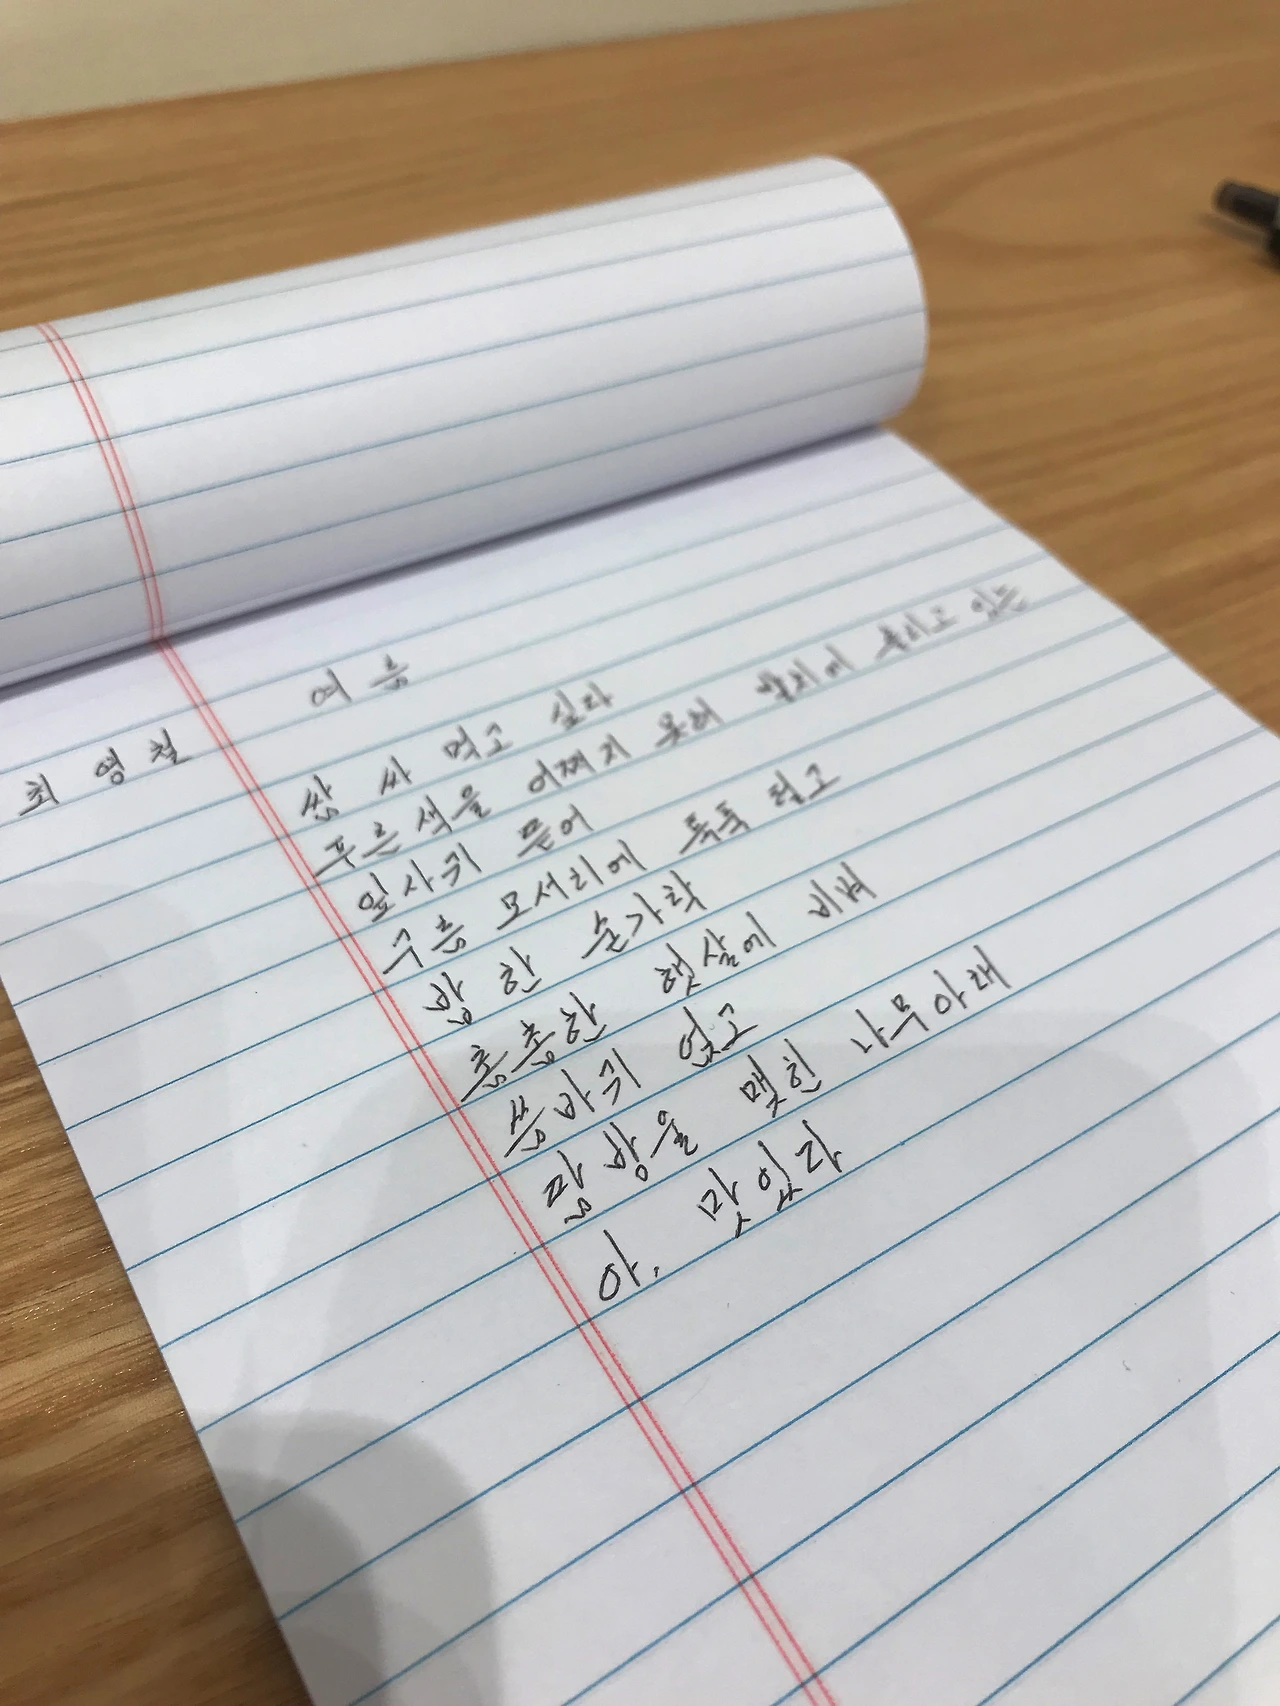 여름
최영철
쌈 싸 먹고 싶다
푸른색을 어쩌지 못해 발치에 흘리고 있는
잎사귀 뜯어
구름 모서리에 툭툭 털고
밥 한 숟가락
촘촘한 햇살에 비벼
씀바귀 얹고
땀방울 맺힌 나무아래
아, 맛있다